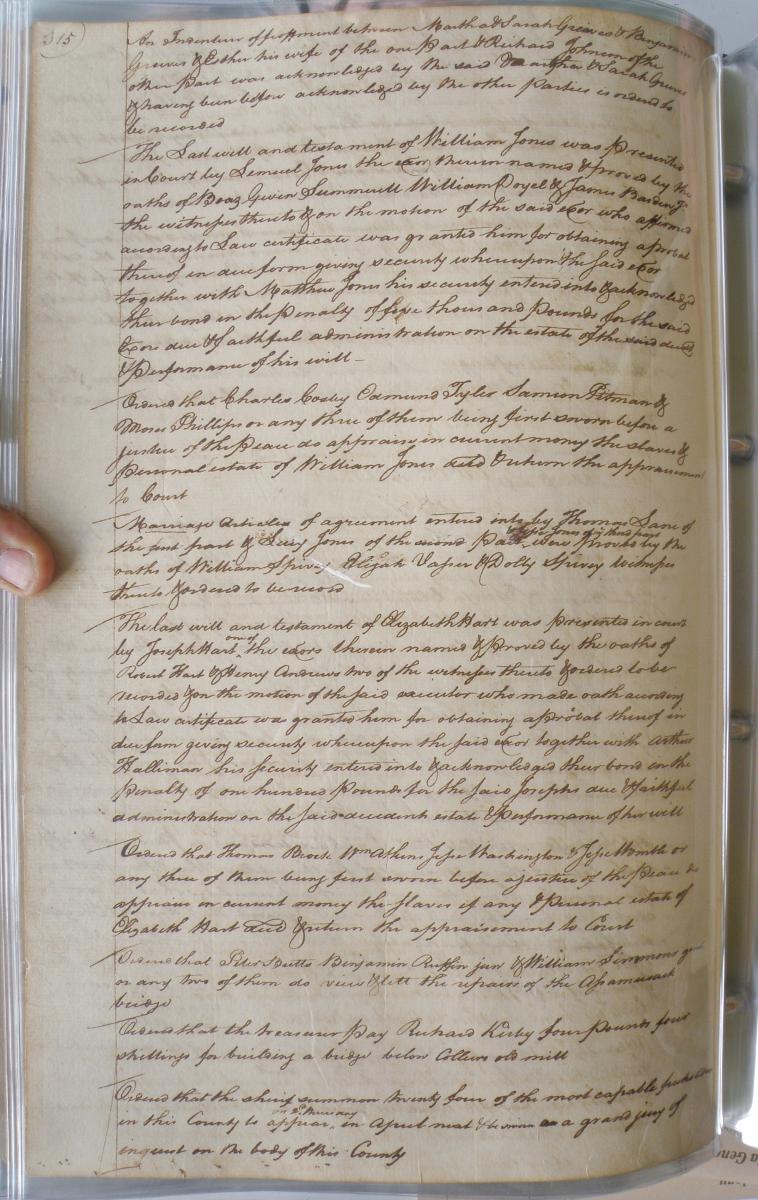 315
An Indenture of feoffment between Martha & Sarah Greaves & Benjamin
Greaves & Esther his wife of the one Part & Richard Johnson of the
other Part was acknowledged by the said Martha & Sarah Greaves
& having been before acknowledged by the other Parties is ordered to
be recorded
The Last will and testament of William Jones was Presented
in Court by Lemuel Jones the exor therein named & Proved by the
oaths of Boaz Gwin Summerell William Doyel & James Barden Jr
the witnesses thereto & on the motion of the said exor who affirmed
according to Law certificate was granted him for obtaining a probat
thereof in due form giving security whereupon the said exor
together with Matthew Jones his security entered into & acknowledged
their bond in the Penalty of five thousand Pounds for the said
Exors due & faithful administration on the estate of the said decd
& Performance of his will
Ordered that Charles Cosby Edmund Tyler Samson Pitman &
Moses Phillips or any three of them being first sworn before a
justice of the Peace do appraise in current money the slaves &
Personal estate of William Jones decd & return the appraisement
to Court
Marriage articles of agreement entered into by Thomas Lane of
the first part & Lucy Jones of the second Part were Proved by the
oaths of William Spivey Elijah Vasser & Dolly Spivey witnesses
thereto & ordered to be record
The last will and testament of Elizabeth Hart was Presented in court
by Joseph Hart one of the exors therein named & Proved by the oaths of
Robert Hart & Henry Andrews two of the witnesses thereto & ordered to be
recorded & on the motion of the said executor who made oath according
to Law certificate was granted him for obtaining a probat thereof in
due form giving security whereupon the said exor together with Arthur
Halliman his security entered into & acknowledged their bond in the
Penalty of one hundred Pounds for the said Josephs due & faithful
administration on the said decedents estate & Performance of her will
Ordered that Thomas Brock Wm Atkins Jesse Washington & Jesse Womble or
any three of them being first sworn before a justice of the Peace do
appraise in current money the slaves if any & Personal estate of
Elizabeth Hart decd & return the appraisement to Court
Ordered that Peter Butts Benjamin Ruffin jun & William Simmons
or any two of them do view & lett the repairs of the Assamusack
bridge
Ordered that the treasurer Pay Richard Kirby four Pounds four
shillings for building a bridge below Colliers old mill
Ordered that the sherif summon twenty four of the most capable freeholders
in this County to appear on 2d thursday in April next & be sworn as a grand jury of
inquest on the body of this County